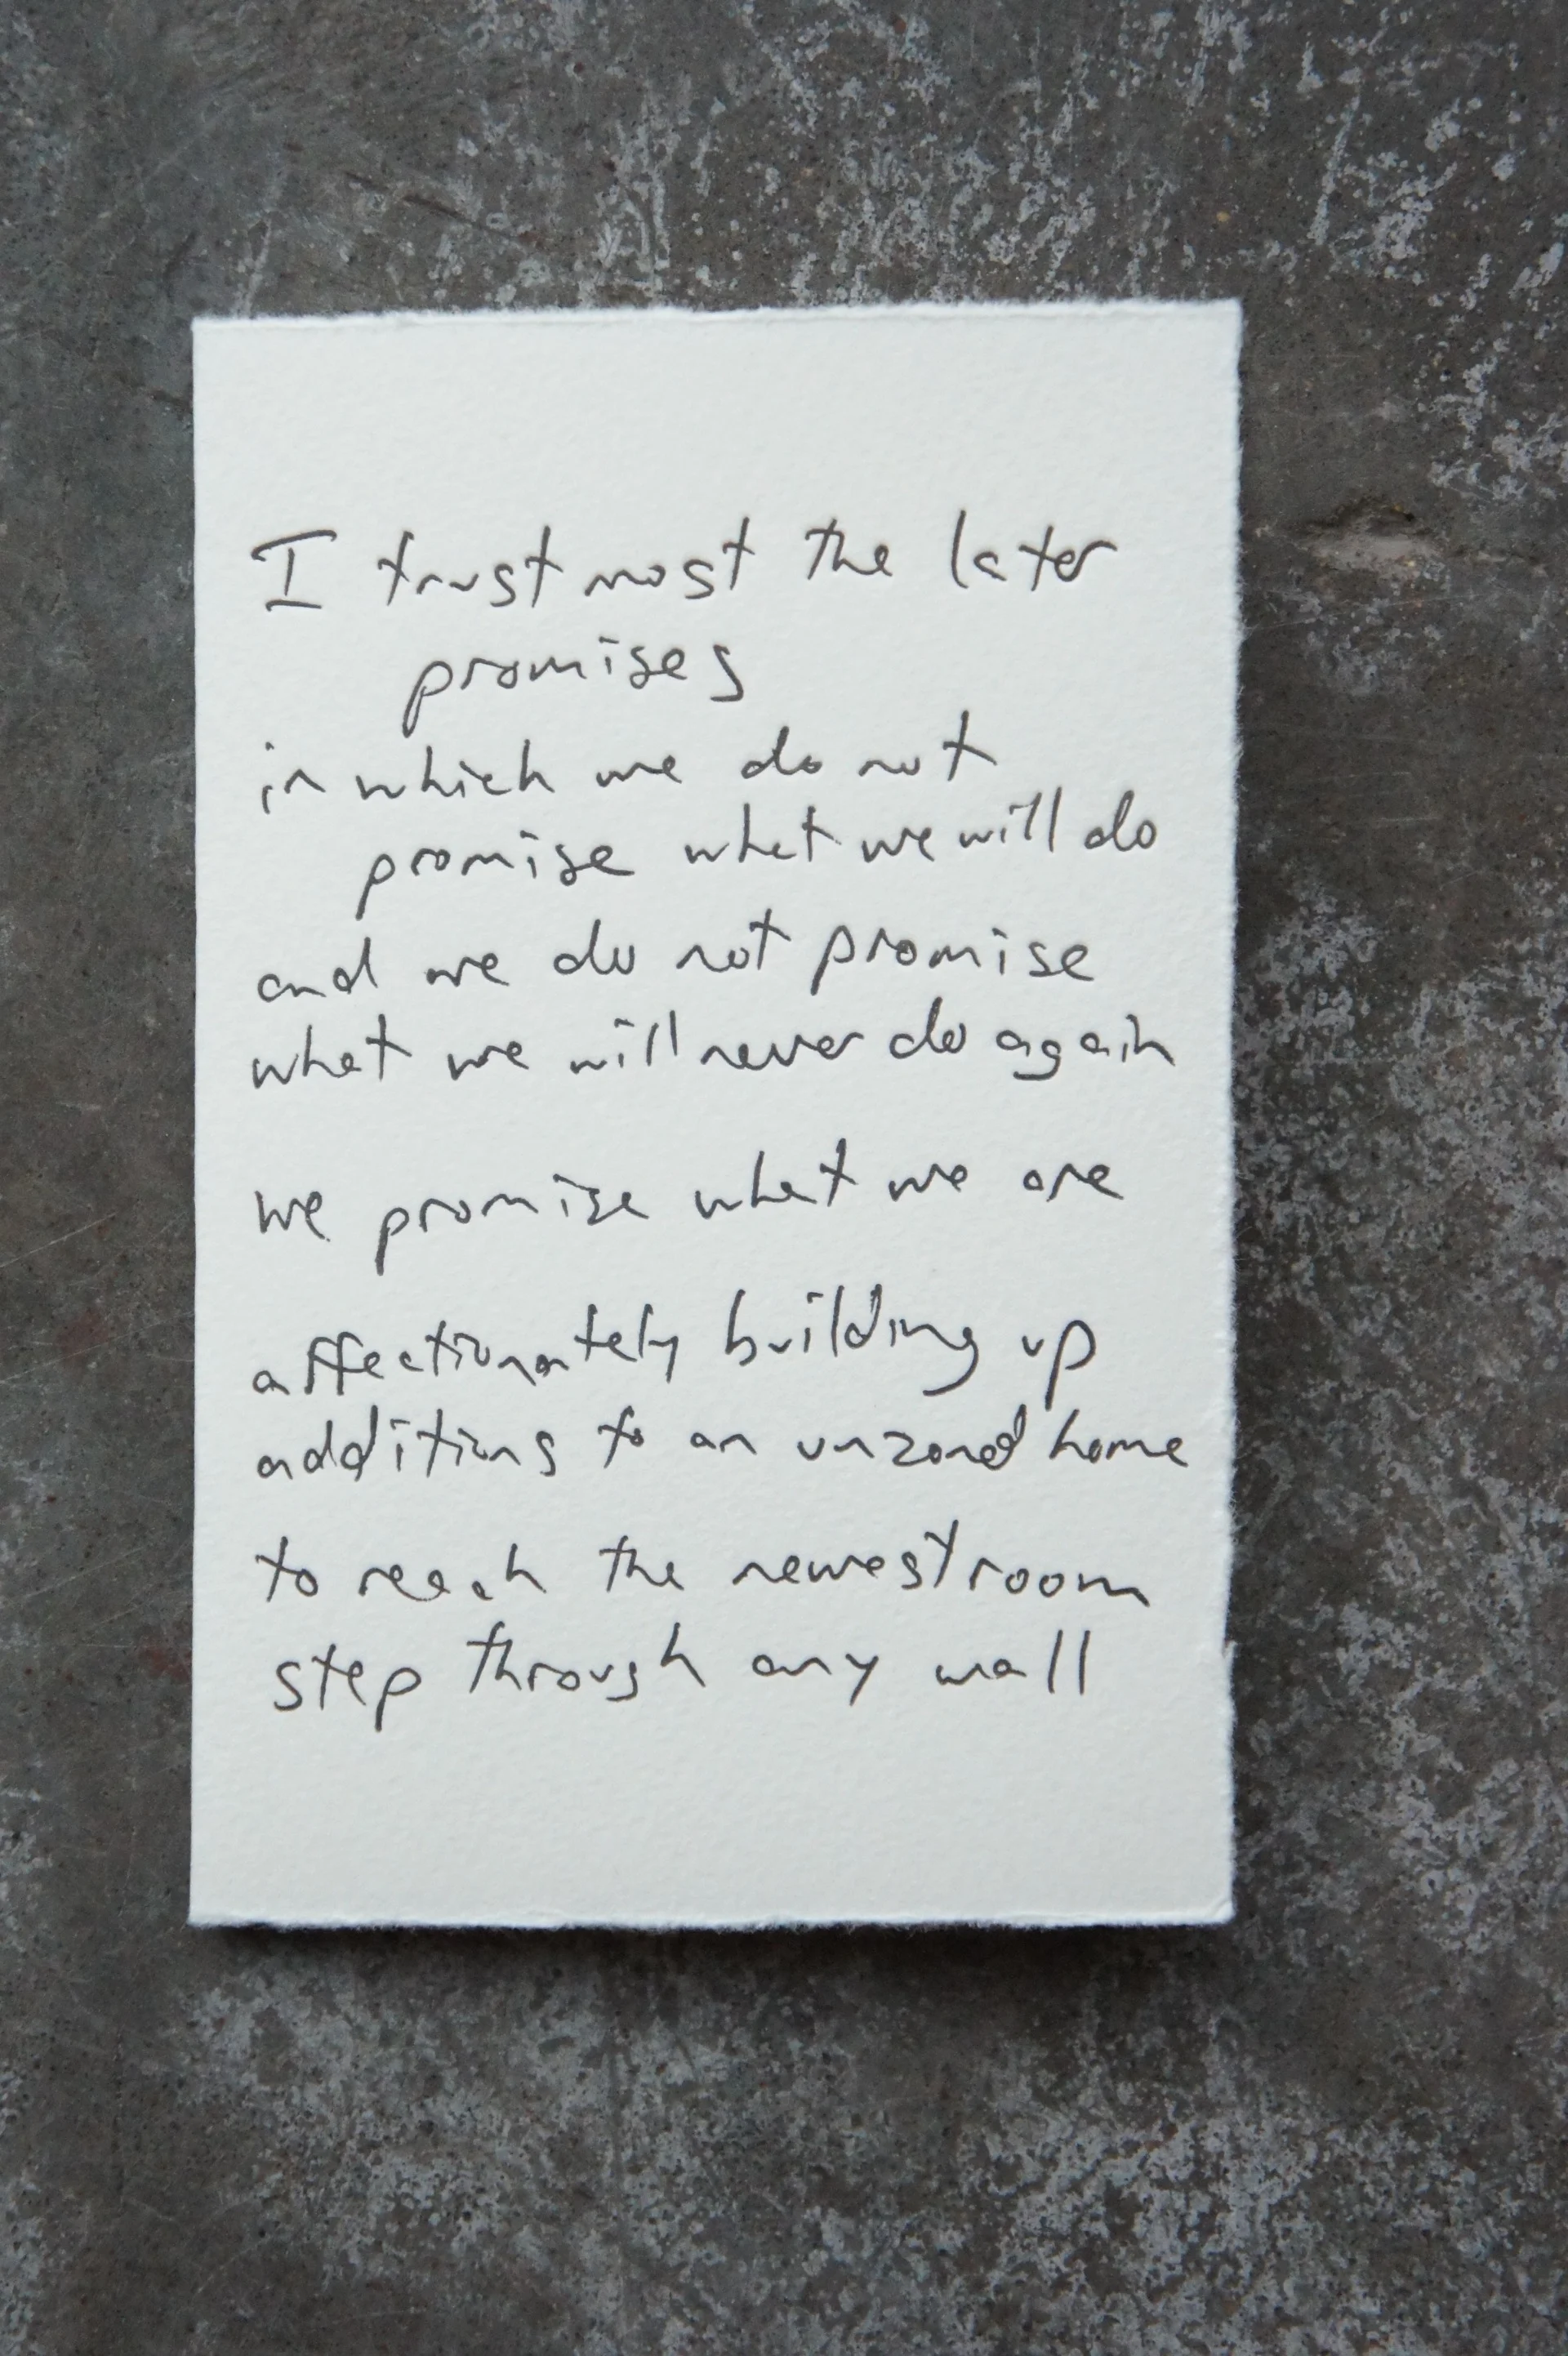 I trust most the later
promises
in which we do not
promise what we will do
and we do not promise
what we will never do again
we promise what we are
affectionately building up
additions to an unzoned home
to reach the newest room
step through any wall